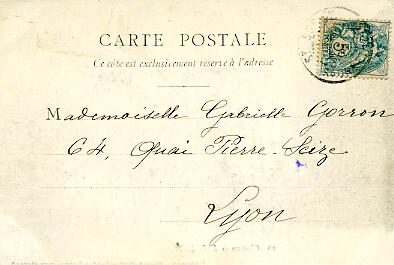 CARTE POSTALE
Ce côté est exclusivement réservé à l'adresse
Mademoiselle Gabrielle Gorron
64, Quai Pierre-Seize
Lyon